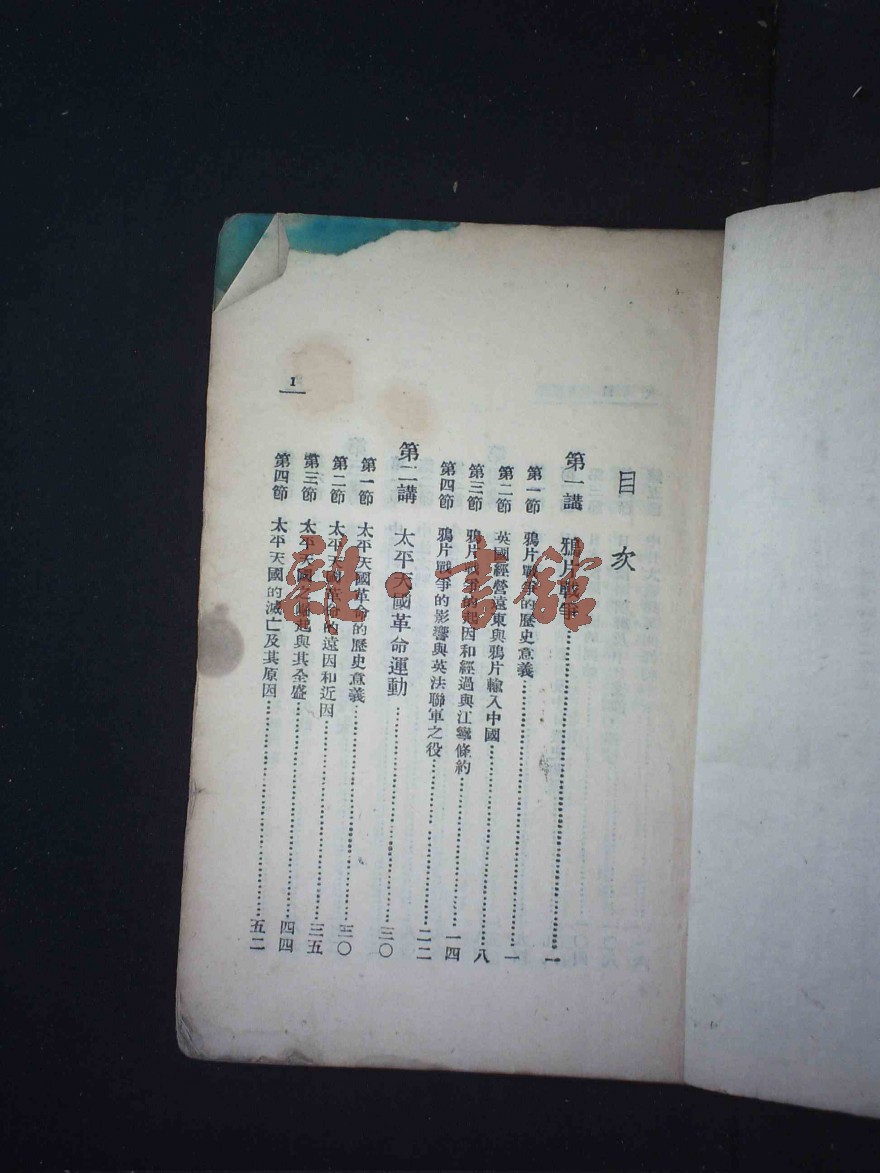 目次
第一講 鴉片戰爭 一
第一節 鴉片戰爭的歷史意義 一
第二節 英國經營遠東與鴉片輸入中國 八
第三節 鴉片戰爭的起因和經過與江寧條約 一四
第四節 鴉片戰爭的影響與英法聯軍之役 二二
第二講 太平天國革命運動 三〇
第一節 太平天國革命的歷史意義 三〇
第二節 太平天國革命的遠因和近因 三五
第三節 太平天國之崛起與其全盛 四四
第四節 太平天國的滅亡及其原因 五二
1